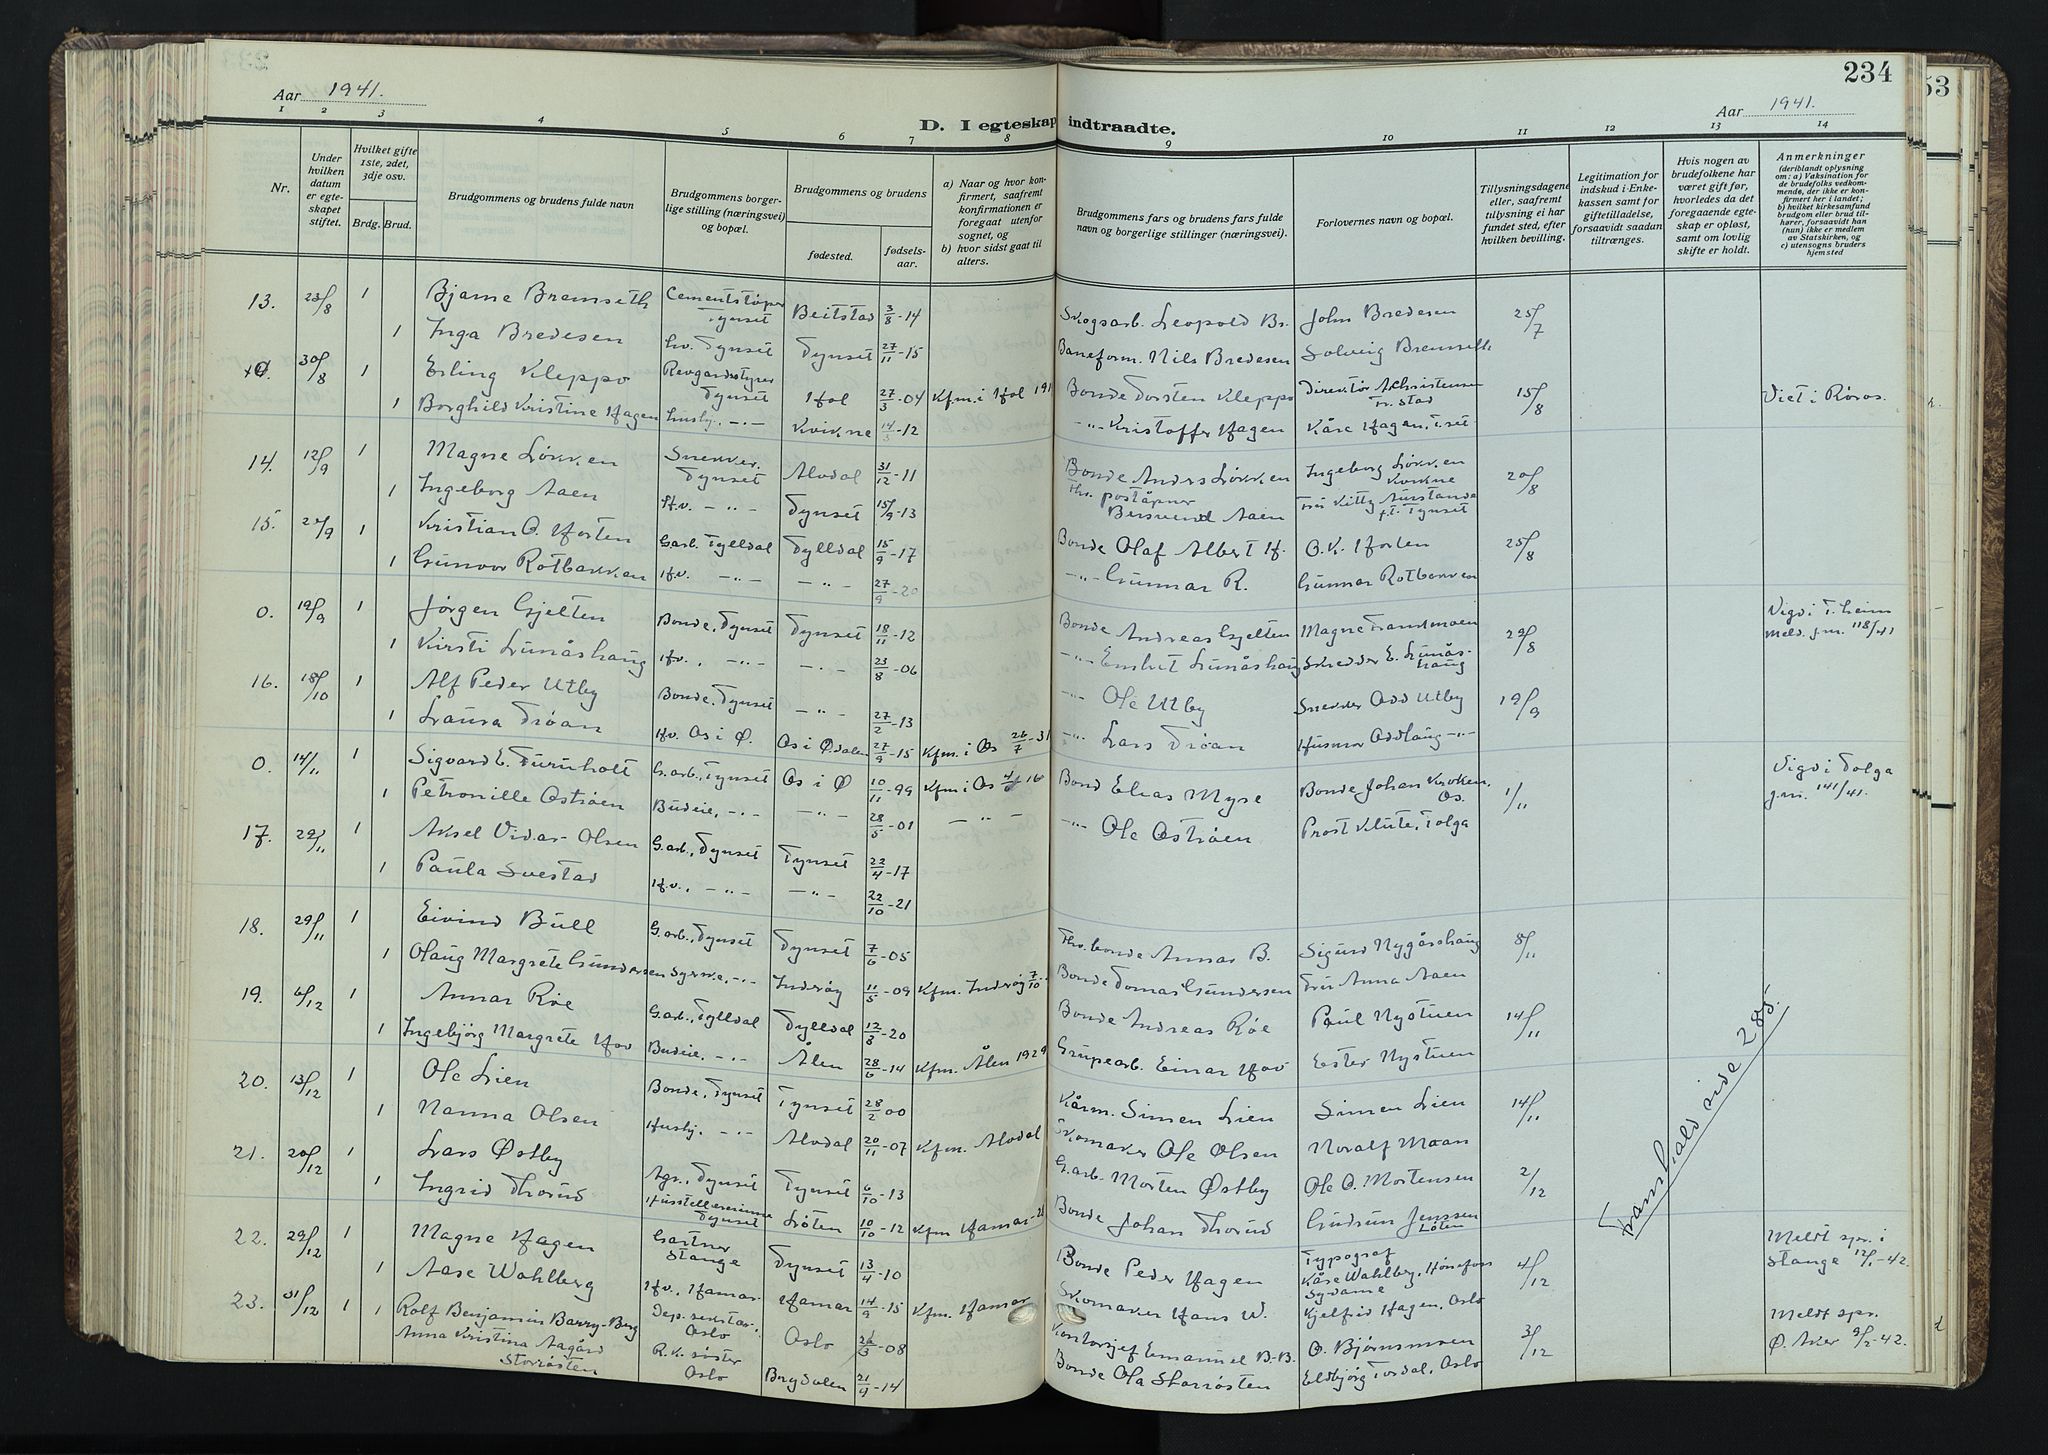 234
Aar 1941.
Aar 1941.
D. I egteskap indtraadte.
1 2 3 4 5 6 7 8 9 10 11 12 13 14
Nr.
Under hvilken datum er egteskapet stiftet.
Hvilket gifte 1ste, 2det, 3dje osv.
Brdg. Brud.
Brudgommens og brudens fulde navn
Brudgommens borgerlige stilling (næringsvei) og bopæl.
Brudgommens og brudens
fødested.
fødselsaar.
a) Naar og hvor konfirmert, saafremt konfirmationen er foregaat utenfor sognet, og
b) hvor sidst gaat til alters.
Brudgommens fars og brudens fars fulde navn og borgerlige stillinger (næringsvei).
Forlovernes navn og bopæl.
Tillysningsdagene eller, saafremt tillysning ei har fundet sted, efter hvilken bevilling.
Legitimation for indskud i Enkekassen samt for giftetilladelse, forsaavidt saadan tiltrænges.
Hvis nogen av brudefolkene har været gift før, hvorledes da det foregaaende egteskap er opløst, samt om lovlig skifte er holdt.
Anmerkninger
(deriblandt oplysning om: a) Vaksination for de brudefolks vedkommende, der ikke er konfirmert her i landet; b) hvilket kirkesamfund brudgom eller brud tilhører, forsaavidt han (hun) ikke er medlem av Statskirken, og c) utensogns bruders hjemsted
13. 23/8 1 Bjarne Bremseth Cementstøper Tynset Beitstad 3/8-14 Skogsarb. Leopold Br. John Bredesen 25/7
1 Inga Bredesen hv. Tynset Tynset 27/11-15 Baneform. Nils Bredesen Solveig Bremseth
30/8 1 Erling Kleppo Revgardsstyrer Tynset Hol 27/3-04 Kfm. i Hol 191 Bonde Torsten Kleppo Direktør A Christensen 15/8 Viet i Røros.
1 Borghild Kristine Hagen husb. -"- Kvikne 14/3-12 -"- Kristoffer Hagen Kåre Hagen, T.set
14. 12/9 1 Magne Løkken Snekker. Tynset Alvdal 31/12-11 Bonde Anders Løkken Ingeborg Løkken Kvikne 20/8
1 Ingeborg Aaen Hv. -"- Tynset 15/9-13 Fhv. poståpner Bersvend Aaen Frk Kitty Aurstande f.t. Tynset
15. 27/9 1 Kristian O. Horten G.arb. Tylldal Tylldal 15/9-17 Bonde Olaf Albert H. O. K. Horten 25/8
1 Gunvor Rotbakken Hv. -"- -"- 27/9-20 -"- Gunnar R. Gunnar Rotbakken
0. 19/9 1 Jørgen Gjelten Bonde, Tynset Tynset 18/11-12 Bonde Andreas Gjelten Magne Tranmoen 29/8 Vigd i T.heim meld. j.nr. 118/41
1 Kirsti Lunåshaug Hv., -"- -"- 23/8-06 -"- Embret Lunåshaug Skredder E. Lunåshaug
16. 18/10 1 Alf Peder Utby Bonde, Tynset -"- 27/2-13 -"- Ole Utby Snekker Odd Utby 19/9
1 Laura Trøan Hv. Os i Ø. Os i Ø.dalen 27/9-15 Kfm. i Os 26/7-31 -"- Lars Trøan Husmor Oddlaug -"-
0. 14/11 1 Sigvard E. Furuholt G.arb., Tynset Os i Ø 10/11-99 Kfm i Os 16 Bond Elias Myre Bonde Johan Kroken, Os. 1/11 Vigd i Tolga j.nr. 141/41.
1 Petronille Ostrøen Budeie, -"- -"- 28/5-01 -"- -"- Ole Ostrøen Prost Klüte, Tolga
17. 22/11 1 Aksel Vidar Olsen G.arb., Tynset Tynset 22/4-17
1 Paula Svestad Hv., -"- -"- 22/10-21
18. 29/11 1 Eivind Bull G.arb., Tynset Tynset 7/6-05 Fhv. bonde Annar B. Sigurd Nygårdhaug 8/11
1 Olaug Margrete Gundersen Syerske, -"- Inderøy 11/5-09 Kfm. Inderøy 7/10 Bonde Tomas Gundersen Fru Anna Aaen
19. 6/12 1 Annar Røe G.arb., Tylldal Tylldal 12/3-20 Bonde Andreas Røe Paul Nystuen 14/11
1 Ingebjörg Margrete Hov Budeie, -"- Ålen 28/6-14 Kfm. Ålen 1929 Grupearb. Einar Hov Ester Nystuen
20. 13/12 1 Ole Lien Bonde, Tynset Tynset 28/2 00 Kårm. Simen Lien Simen Lien 14/11
1 Nanna Olsen Husb. -"- Alvdal 20/11-07 Kfm. Alvdal Skomaker Ole Olsen Noralf Moan
21. 20/12 1 Lars Østby Agr., Tynset Tynset 6/10-13 G.arb. Morten Østby Ole O. Mortensen 2/12
1 Ingrid Thorud Husstellærerinne Tynset Løten 10/10-12 Kfm Hamar-28 Bonde Johan Thorud Gudrun Jenssen Løten
22. 29/12 1 Magne Hagen Gartner Stange Tynset 13/4-10 Bonde Peder Hagen Typograf Kåre Wahlberg, Hønefoss 4/12 Meldt spr. i Stange 12/1-42.
1 Aase Wahlberg Hv., Hamar Hamar 14/9-15 Kfm. Hamar Skomaker Hans W. Sydame Kjelfrid Hagen, Oslo
23. 31/12 1 1 Rolf Benjamin Barry-Berg Dep. sekretær, Oslo Oslo 26/3-08 Kontorsjef Emanuel B.-B. O. Bjørnmoen 3/12 Meldt spr. Ø. Aker 9/2-42.
Anna Kristina Aagård Storrøsten R.K. søster Oslo Brydalen 21/9-14 Bonde Ola Storrøsten Eldbjørg Tordal, Oslo
Framhald side 285.